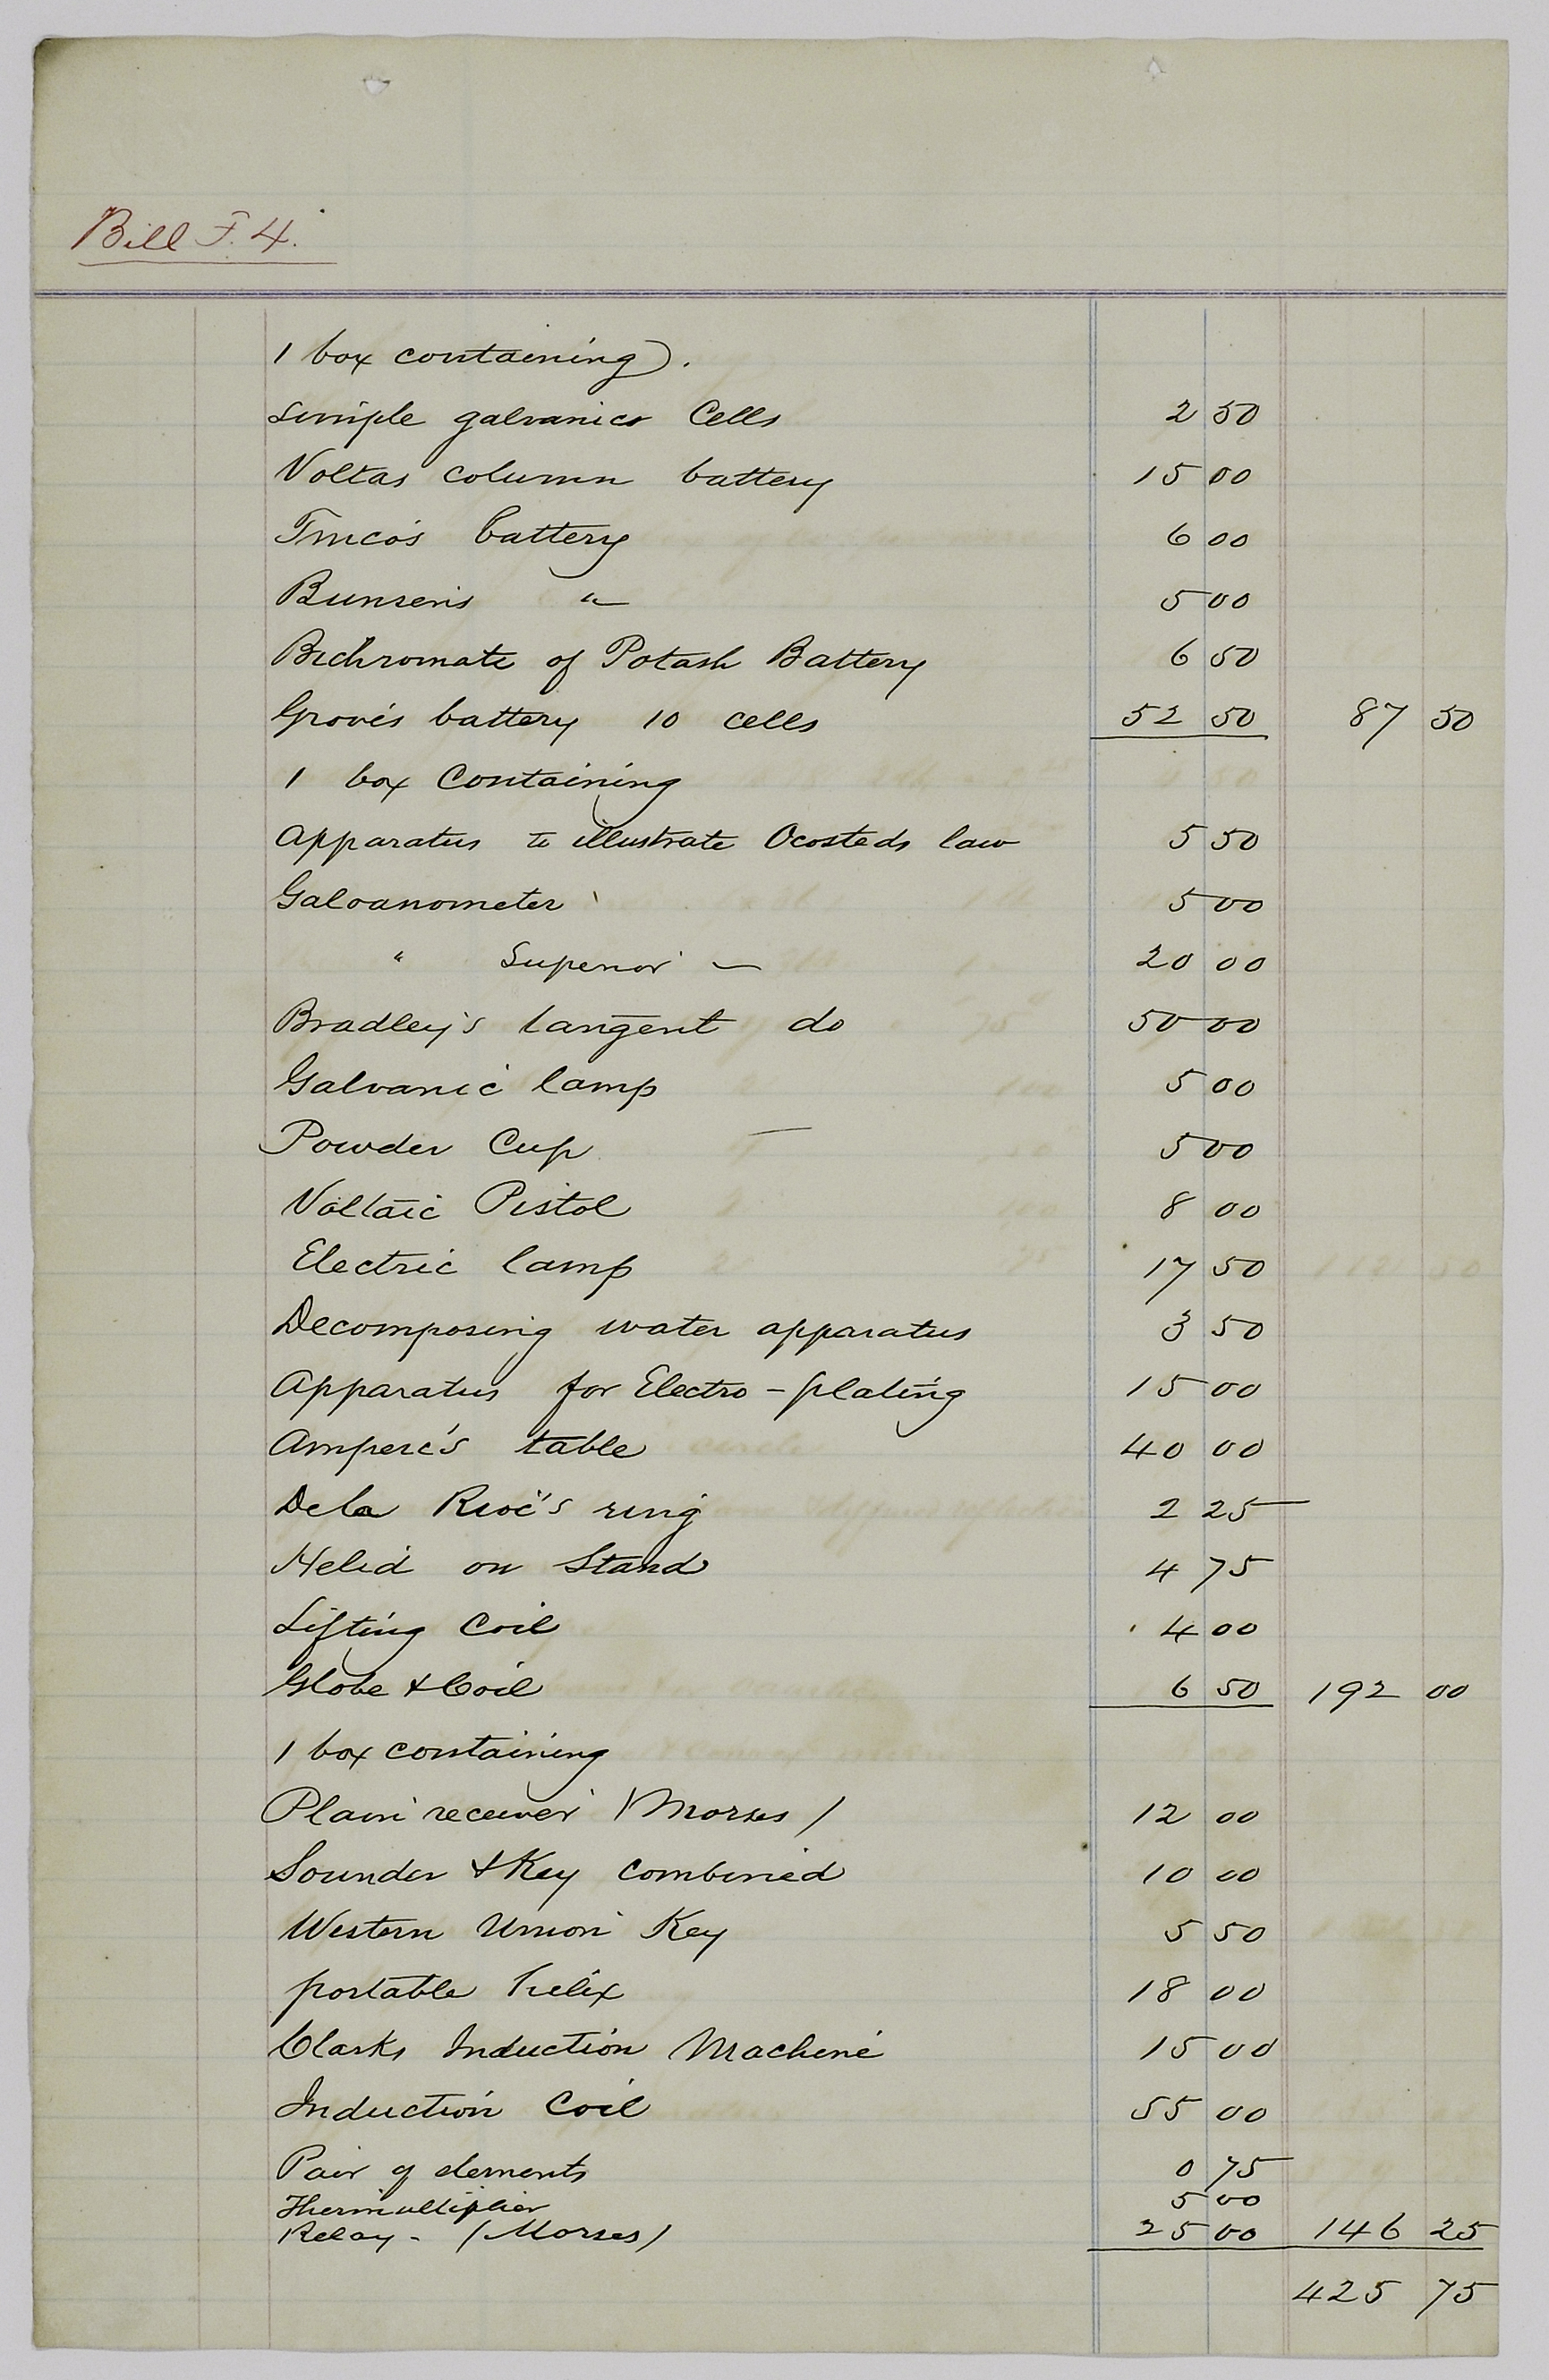 Bill F. 4.
1 box containing.
Simple galvanics Cells 2 50
Voltas column battery 15 00
Smeo's battery 6 00
Bunsen's " 5 00
Bichromate of Potash Battery 6 50
Grove's battery 10 cells 52 50 87 50
1 box Containing
Apparatus to illustrate Ocosteds law 5 50
Galvanometer 5 00
" Superior — 20 00
Bradley's tangent do 50 00
Galvanic lamp 5 00
Powder Cup — 5 00
Voltaic Pistol 8 00
Electric lamp 17 50
Decomposing water apparatus 3 50
Apparatus for Electro-plating 15 00
Ampere's table 40 00
De la Rive's ring 2 25
Helid on Stand 4 75
Lifting Coil 4 00
Globe & Coil 6 50 192 00
1 box containing
Plain receiver (Morses) 12 00
Sounder & Key combined 10 00
Western Union Key 5 50
portable helix 18 00
Clarks Induction Machine 15 00
Induction Coil 55 00
Pair of elements 0 75
Thermultiplier 5 00
Relay - (Morses) 25 00 146 25
425 75